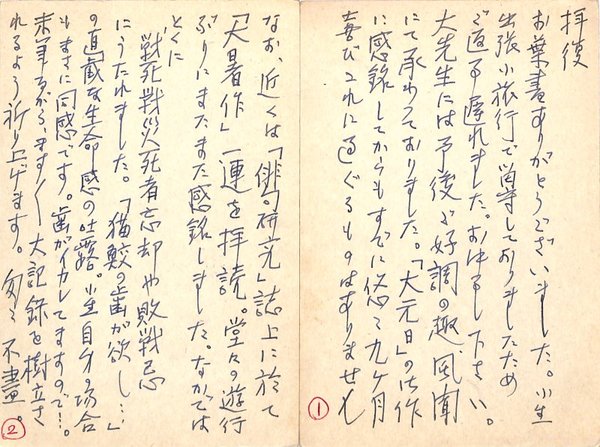 拝復
お葉書ありがとうございました。小生
出張小旅行で留守しておりましたため
ご返事遅れました。お申し下さい。
大先生には予後ご好調の趣、風聞
にて承わっておりました。「大元日」の御作
に感銘してからもすでに悠々九ヶ月
喜びこれに過ぐるものはありません
①
なお、近くは「俳句研究」誌上に於て
「大暑作」一連を拝読。堂々の遊行
ぶりにまたまた感銘しました。なかでは
とくに
「戦死戦災死者忘却や敗戦忌
にうたれました。「猫鮫の歯が欲し…」
の直截な生命感の吐露。小生自身の場合
もまさに同感です。歯がイカレてますので…。
末筆ながら、ますます大記録を樹立さ
れるよう祈り上げます。匆々不盡。
②